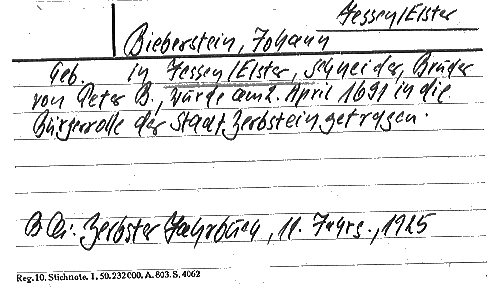 Jessen/Elster
Bieberstein, Johann
Geb. in Jessen/Elster, Schneider, Bruder
von Peter B., wurde am 2. April 1691 in die
Bürgerrolle der Stadt Zerbst eingetragen.
B Qu. Zerbster Jahrbuch, 11. Jahrg., 1925
Reg. 10. Stichnote. 1. 50. 232 000. A. 803. S. 4062